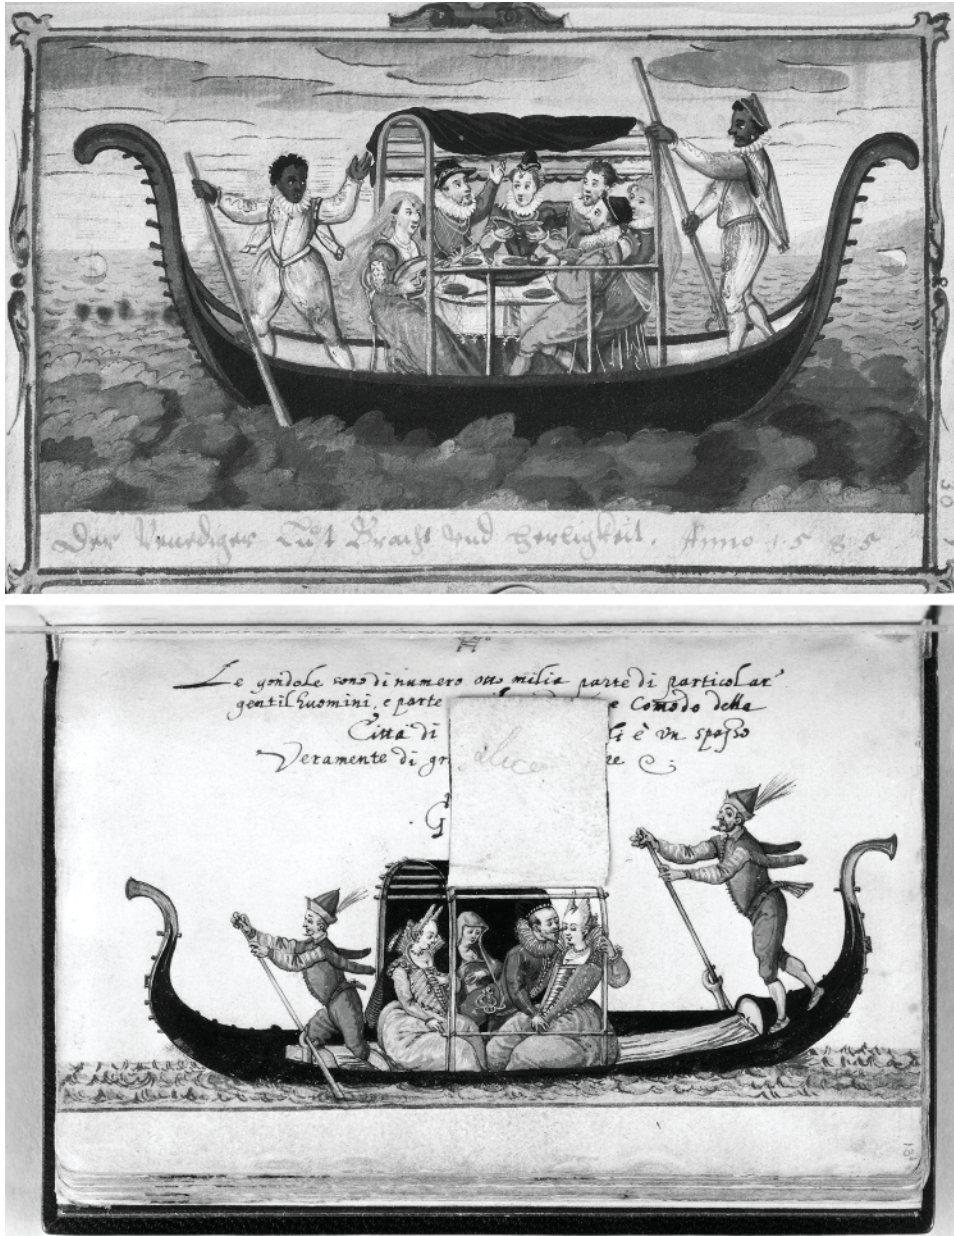 Der Venediger Lust Bracht vnd herligkeit. Anno 1585
30
Le gondole sono di numero otto milia parte di particolar'
gentilhuomini, e parte e Comodo della
Citta di li è vn spasso
Veramente di gr re
G
131